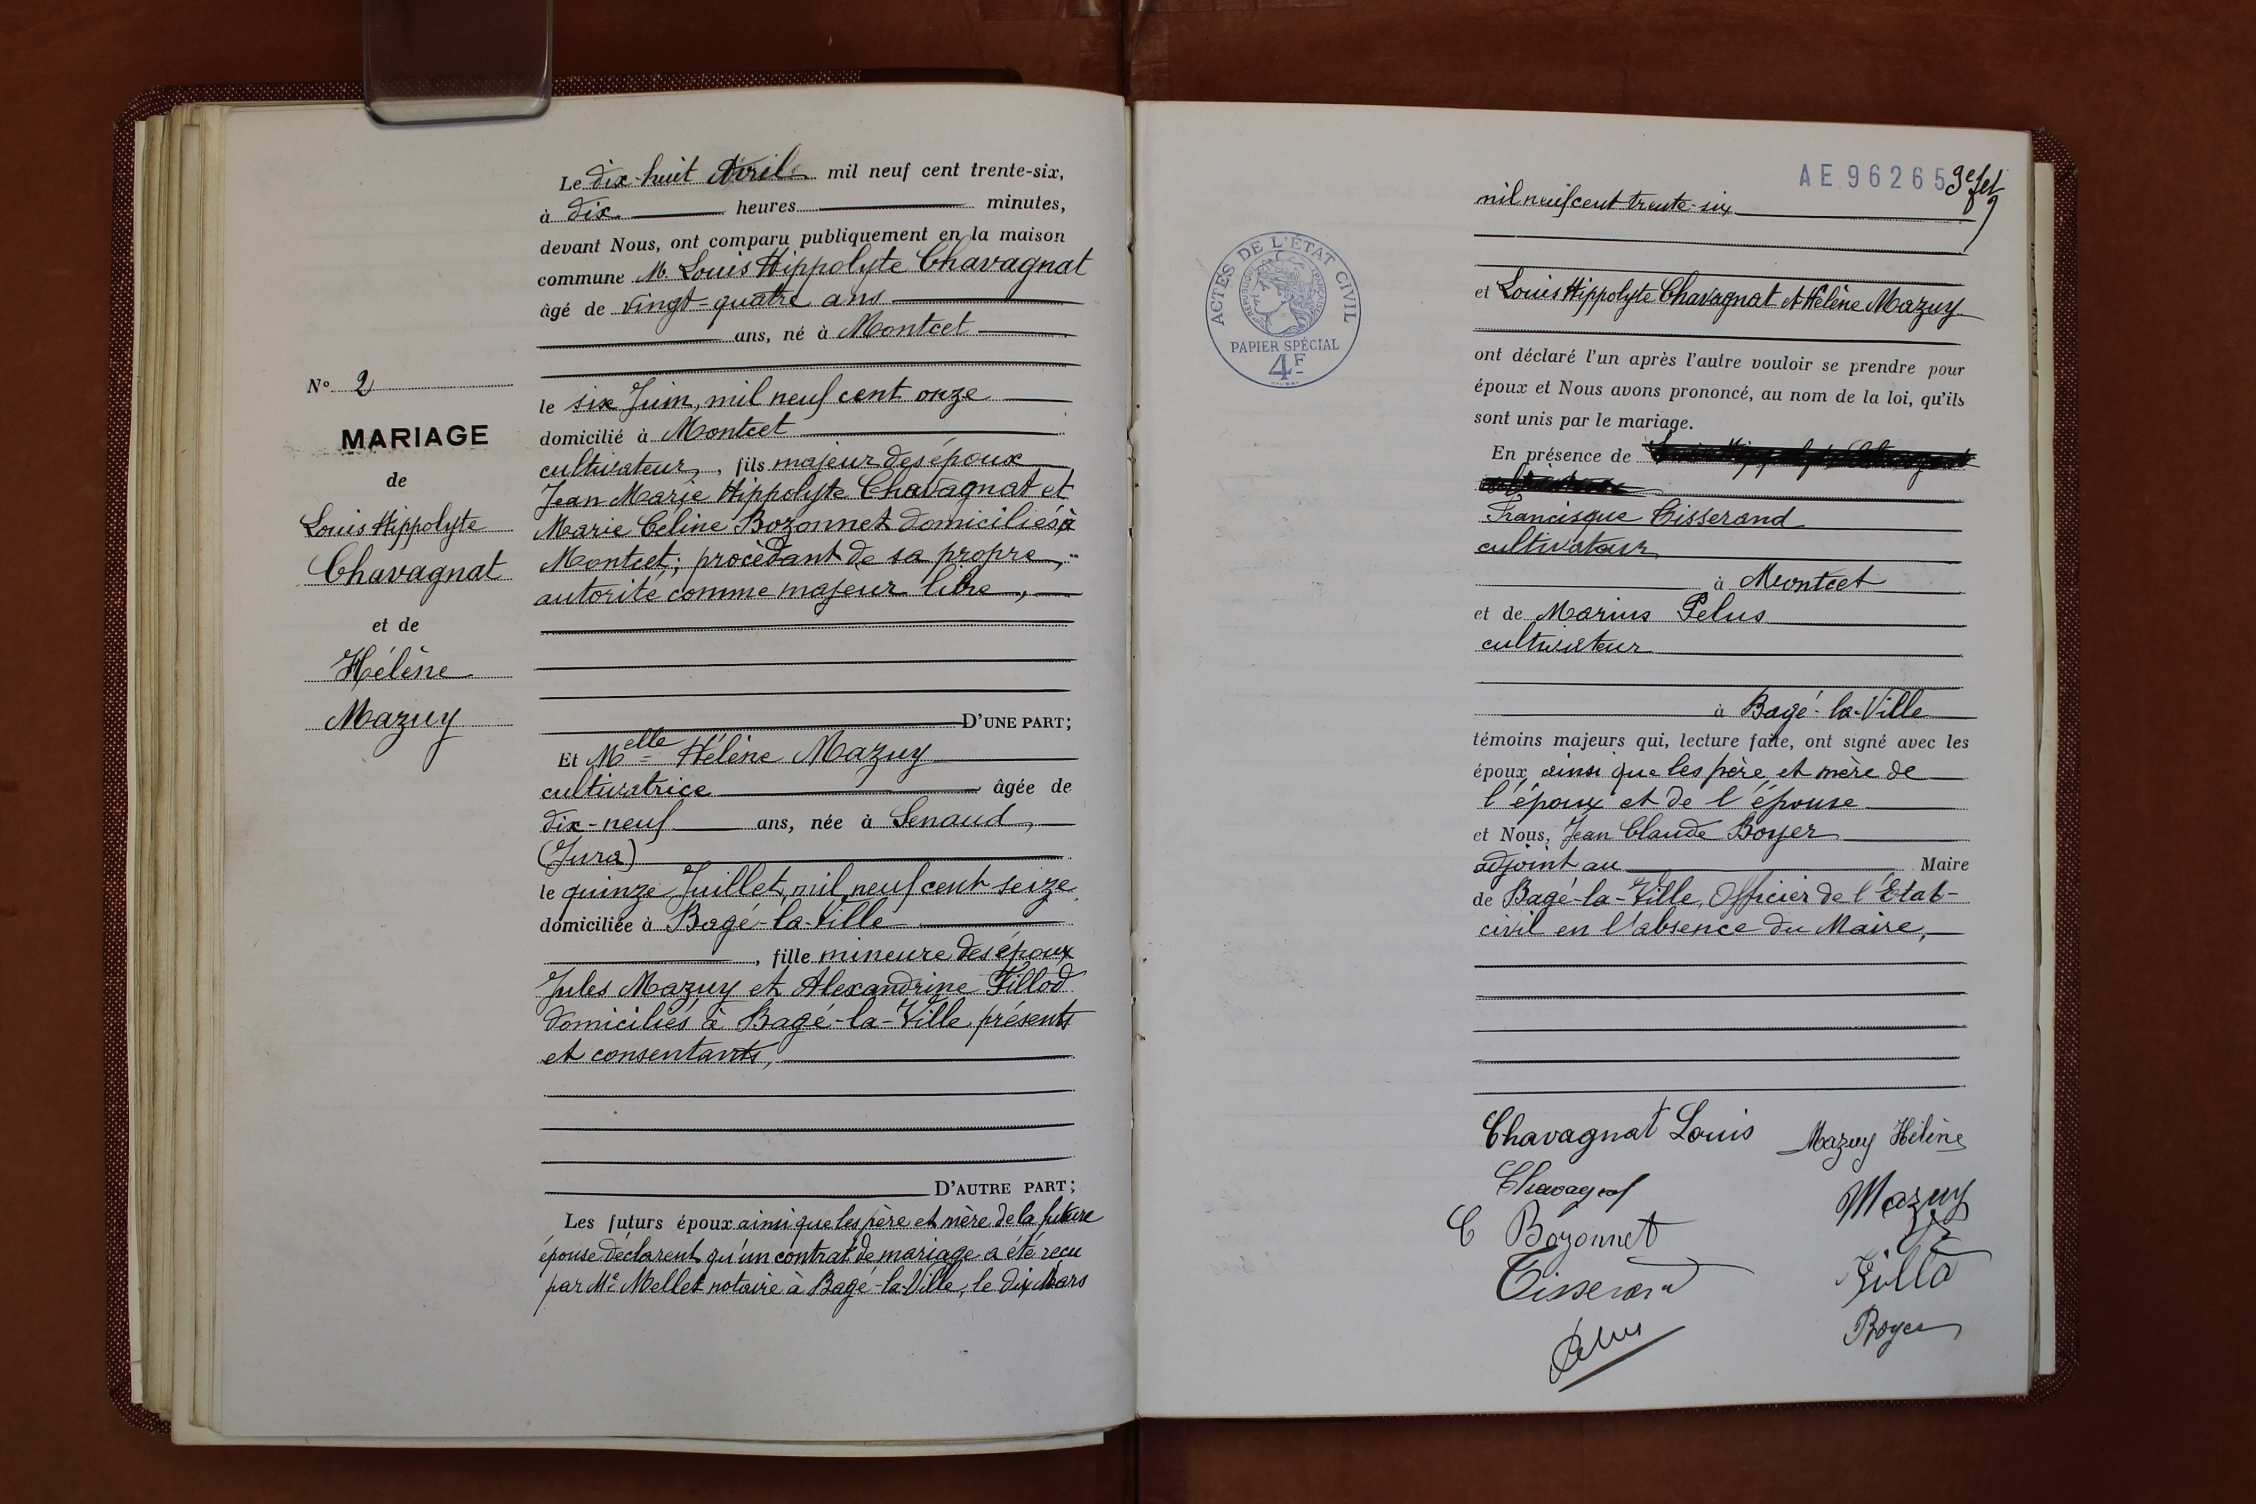 Le dix-huit Avril mil neuf cent trente-six,
à dix heures minutes,
devant Nous, ont comparu publiquement en la maison
commune M. Louis Hippolyte Chavagnat
âgé de vingt-quatre ans
ans, né à Montcet
le six Juin, mil neuf cent onze
domicilié à Montcet
cultivateur, fils majeur des époux
Jean Marie Hippolyte Chavagnat et
Marie Celine Bozonnet domiciliés à
Montcet; procédant de sa propre
autorité comme majeur libre,
D'UNE PART;
Et Melle Hélène Mazuy
cultivatrice âgée de
dix-neuf ans, née à Senaud,
(Jura)
le quinze Juillet, mil neuf cent seize
domiciliée à Bagé-la-Ville
, fille mineure des époux
Jules Mazuy et Alexandrine Fillod
domiciliés à Bagé-la-Ville, présents
et consentants,
D'AUTRE PART;
Les futurs époux ainsi que les père et mère de la future
épouse déclarent qu'un contrat de mariage a été reçu
par Me Mellet notaire à Bagé-la-Ville, le dix Mars
No 2
MARIAGE
de
Louis Hippolyte
Chavagnat
et de
Hélène
Mazuy
AE 96265 9e fet
mil neuf cent trente-six
ACTES DE L'ÉTAT CIVIL
RÉPUBLIQUE FRANÇAISE
PAPIER SPÉCIAL
4F
et Louis Hippolyte Chavagnat et Hélène Mazuy
ont déclaré l'un après l'autre vouloir se prendre pour
époux et Nous avons prononcé, au nom de la loi, qu'ils
sont unis par le mariage.
En présence de
Francisque Tisserand
cultivateur
à Montcet
et de Marius Pelus
cultivateur
à Bagé-la-Ville
témoins majeurs qui, lecture faite, ont signé avec les
époux ainsi que les père et mère de
l'époux et de l'épouse
et Nous, Jean Claude Boyer
adjoint au Maire
de Bagé-la-Ville, Officier de l'Etat-
civil en l'absence du Maire,
Chavagnat Louis Mazuy Hélène
Chavagnat Mazuy
C Bozonnet
Tisserand
Pelus Boyer